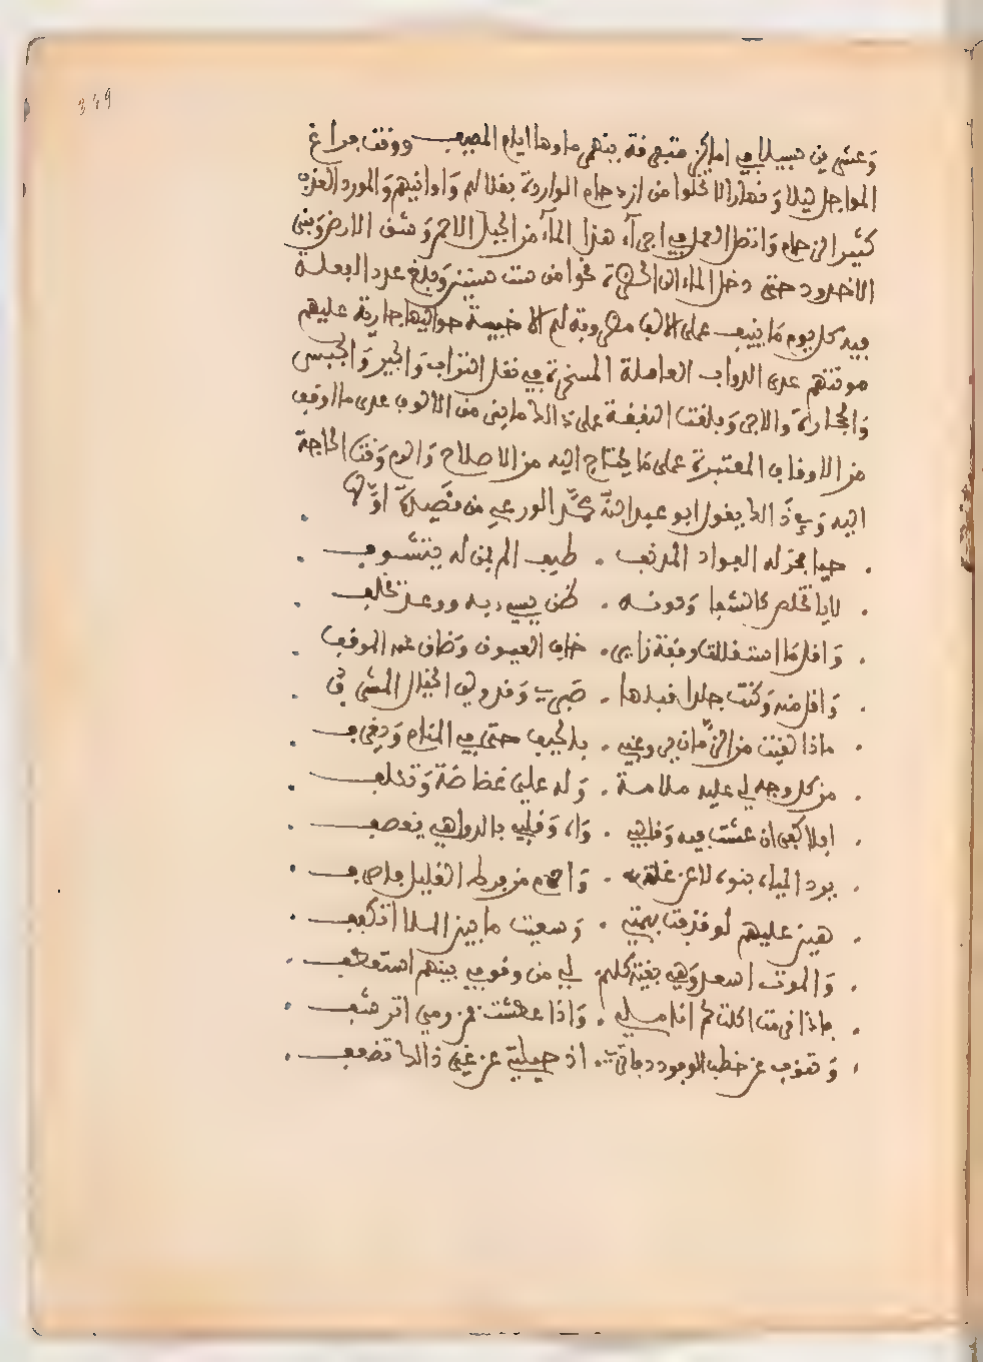 349
وعشرين سبيلا في اماكن متفرقة ينهمر ماؤها ايام المصيف ووقت فراغ
المواجل ليلا ونهارا لا تخلوا من ازدحام الواردة بقلالهم واوانيهم والمورد العذب
كثير الزحام واتصل العمل في اجرآء هذا المآء من الجبل الاحمر وشق الارض وبنى
الاخدود حتى دخل الماء الى الحضرة نحوا من ست سنين وبلغ عدد الفعلة
فيه كل يوم ما ينيف على الالف مضروبة لهم الاخبية حواليها جارية عليهم
مونتهم عدى الدواب العاملة المسخرة في نقل التراب والجير والجبس
والحجارة والاجر وبلغت النفقة على ذالك مايتى من الالوف عدى ما اوقف
من الاوقاف المعتبرة على ما يحتاج اليه من الاصلاح والرم وقت الحاجة
اليه وفي ذالك يقول ابو عبد الله محمد الورغي من قصيدة اولها
حيا بمنزله الفواد المدنف . طيف الم بمن له يتشوف
لايا تخلص كالشجا ودونه .
واقل ما استقللت وقفة زاير . خاف العيون وضاق عنه الموقف
واقل منه وكنت جلدا قبلها . صبري وقد ولى الخيال
ماذا لقيت من الزمان يروعني . بالحيف حتى في المنام ويجف
من كل وجه لي عليه ملامة . وله علي غضاضة وتعلف
افلا كفى ان عشت فيه وفاهه . وقلبه بالدواهي يقصف
يرد المياه بنوه . واحوم من فرط الغليل فاصرف
هين عليهم لو قذفت بهمتي . وسعيت ما بين الملا اتكفف
والموت اسعد وهي بغية كلهم . لي من وقوفي بينهم استعطف
ماذا اكلت لحم اناملي . واذا عطشت فمن دمي اترشف
وتقول عن خطب الوجود . اذ حيلتي عن غير ذالك تضعف